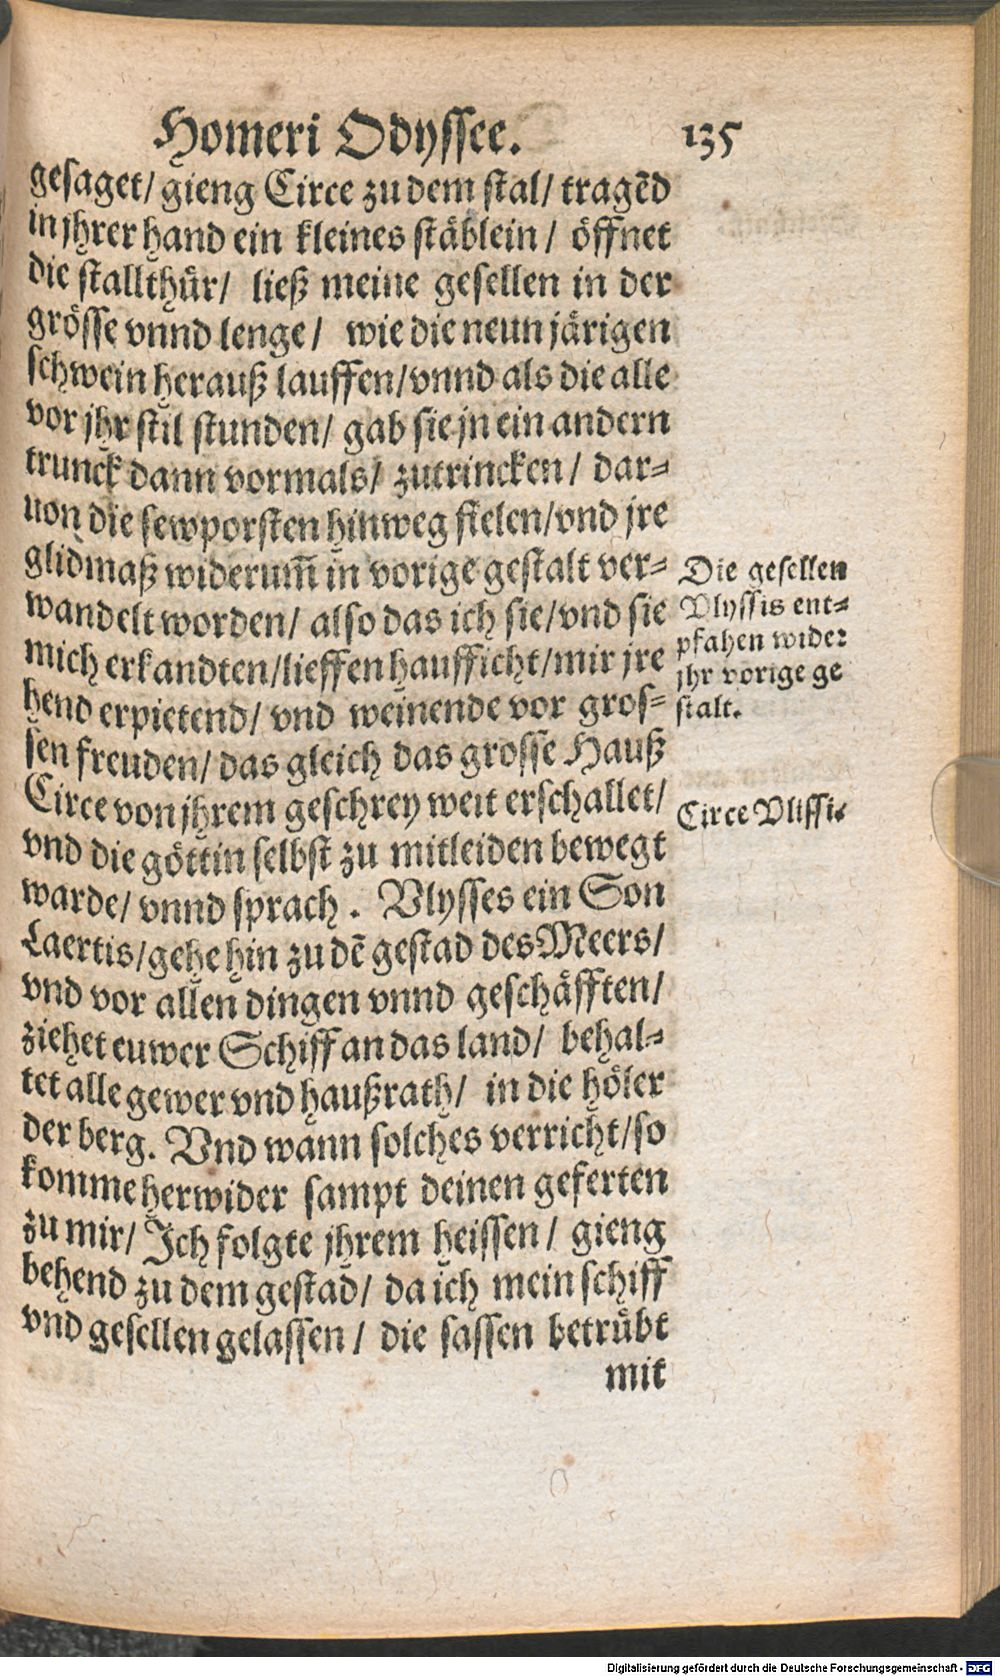 Homeri Odyssee. 135
gesaget/ gieng Circe zu dem stal/ tragēd
in jhrer hand ein kleines stäblein/ öffnet
die stallthür/ ließ meine gesellen in der
grösse vnnd lenge/ wie die neun järigen
schwein herauß lauffen/ vnnd als die alle
vor jhr stil stunden/ gab sie jn ein andern
trunck dann vormals/ zutrincken/ dar-
uon die sewporsten hinweg fielen/ vnd jre
glidmaß widerum̄ in vorige gestalt ver-
wandelt worden/ also das ich sie/ vnd sie
mich erkandten/ lieffen haufficht/ mir jre
hend erpietend/ vnd weinende vor gros-
sen freuden/ das gleich das grosse Hauß
Circe von jhrem geschrey weit erschallet/
vnd die göttin selbst zu mitleiden bewegt
warde/ vnnd sprach. Vlysses ein Son
Laertis/ gehe hin zu dē gestad des Meers/
vnd vor allen dingen vnnd geschäfften/
ziehet euwer Schiff an das land/ behal-
tet alle gewer vnd haußrath/ in die höler
der berg. Vnd wann solches verricht/ so
komme herwider sampt deinen geferten
zu mir/ Ich folgte jhrem heissen/ gieng
behend zu dem gestad/ da ich mein schiff
vnd gesellen gelassen/ die sassen betrübt
mit
Die gesellen
Vlyssis ent-
pfahen wider
jhr vorige ge
stalt.
Circe Vlissi.
Digitalisierung gefördert durch die Deutsche Forschungsgemeinschaft - DFG